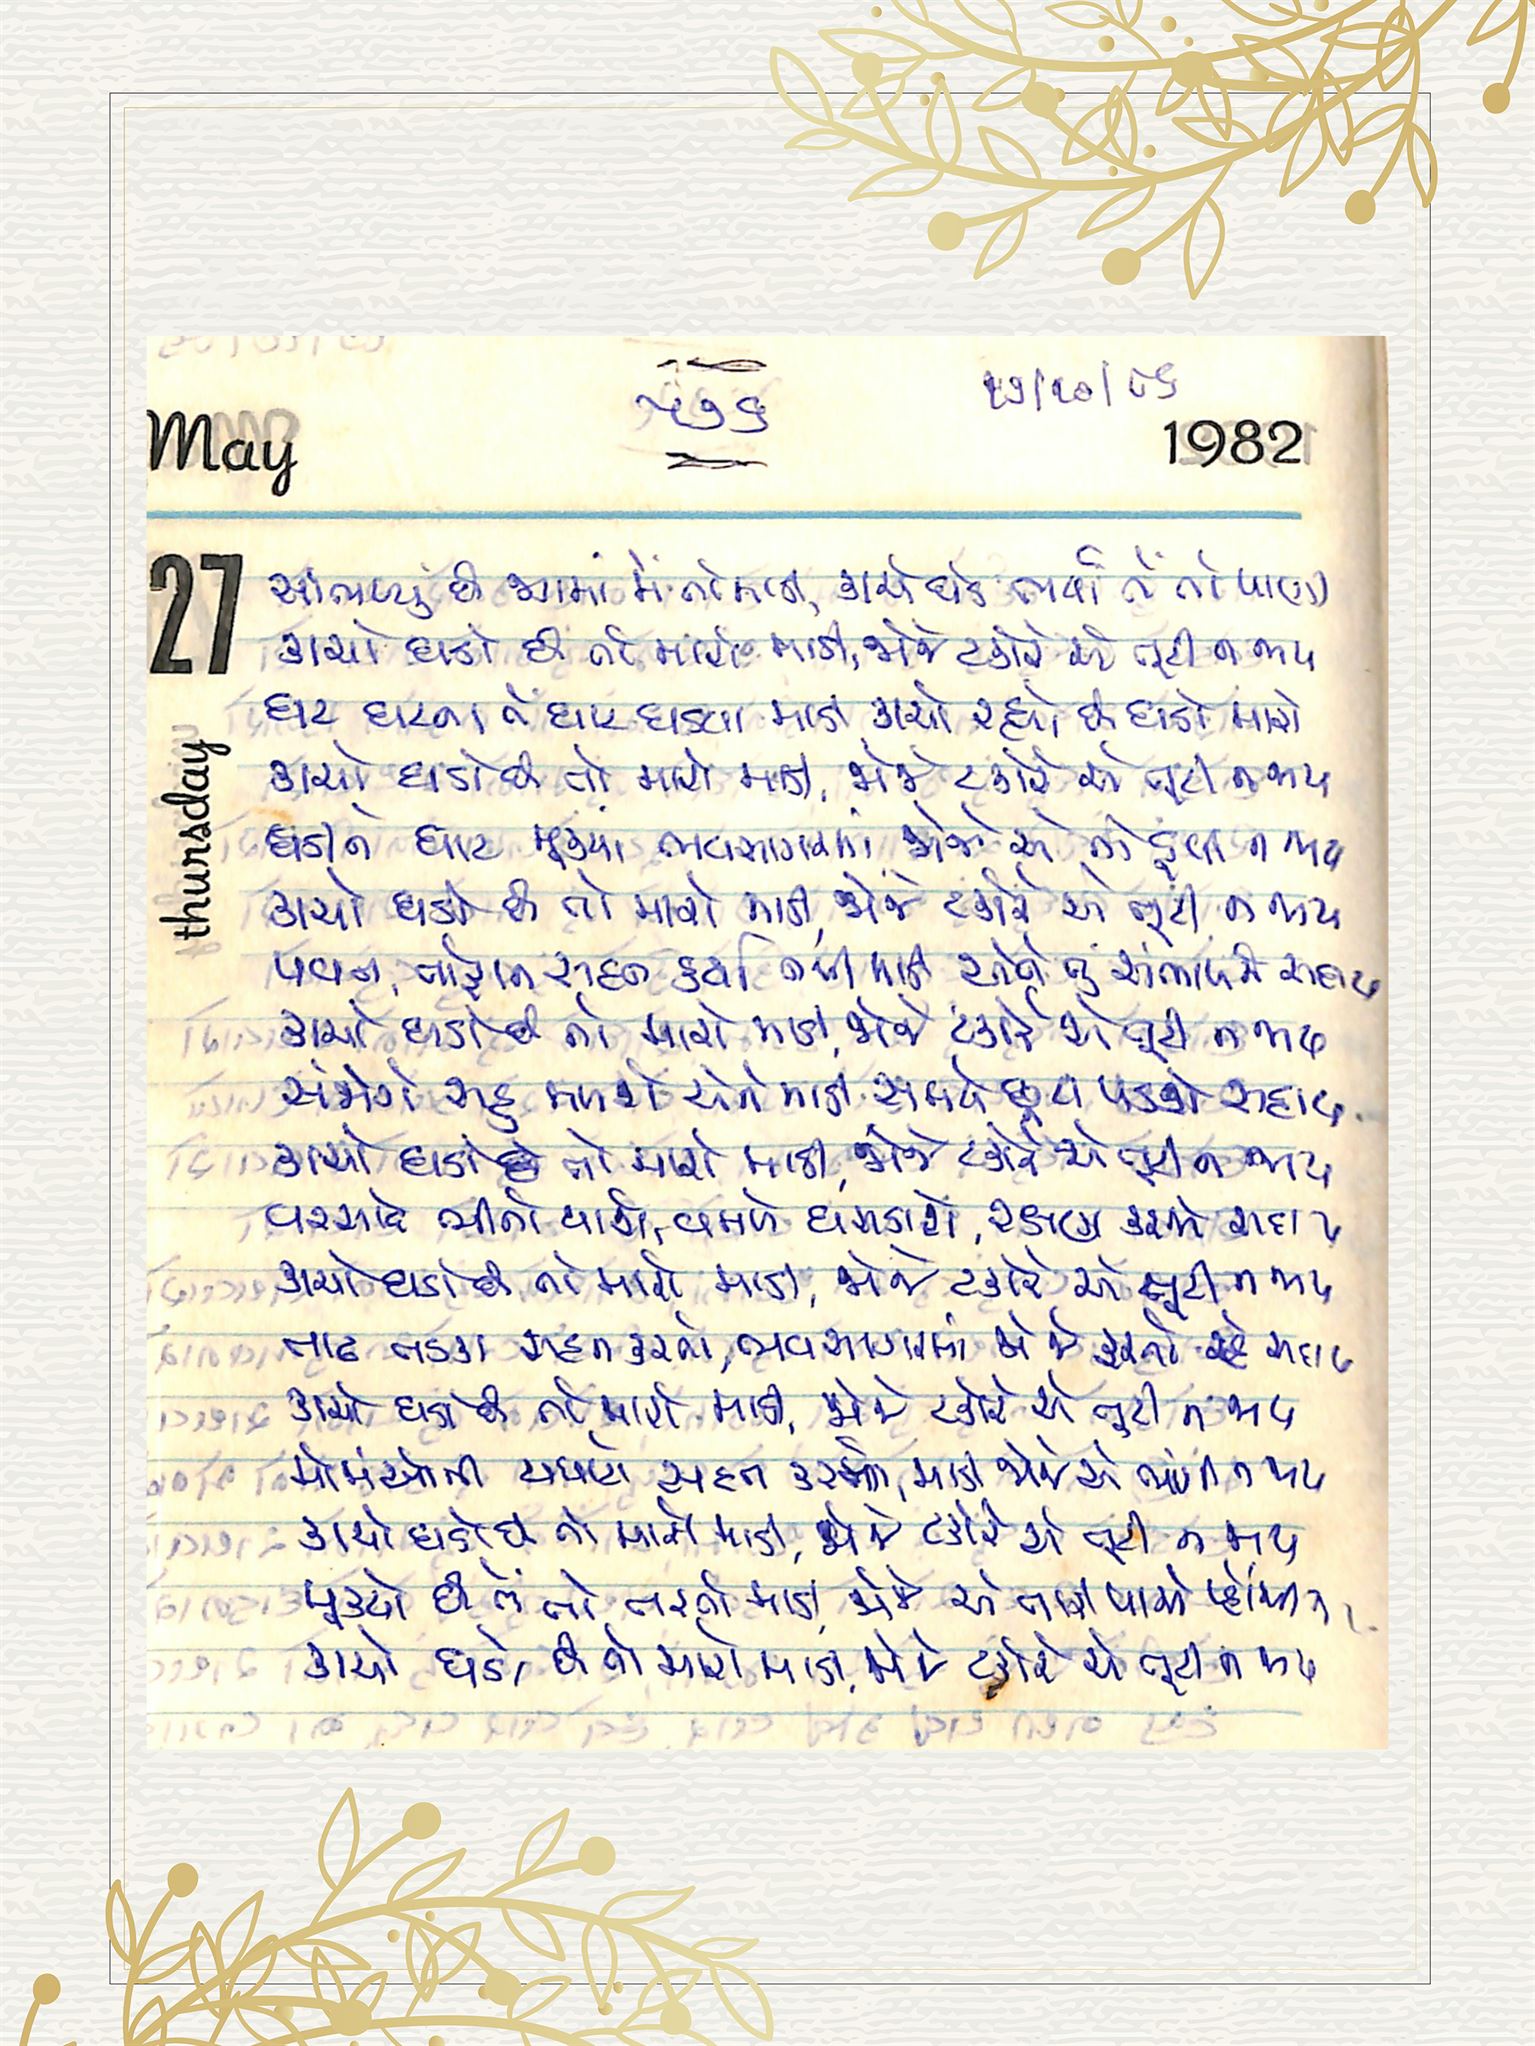 ૨૭/૧૦/૮૬
May
1982
27
thursday
સાંભળ્યું છે જગમાં મેં તો માડી, કાચે ઘડે ભર્યા તેં તો પાણી
કાચો ઘડો છે તો મારો માડી, જોજે ટકોરે એ તૂટી ન જાય
ઘાટ ઘાટના તેં ઘાટ ઘડયા માડી કાચો રહ્યો છે ઘડો મારો
કાચો ઘડો છે તો મારો માડી, જોજે ટકોરે એ તૂટી ન જાય
ઘડીને ઘાટ મૂક્યાં ભવસાગરમાં જોજે એ તો ડૂબી ન જાય
કાચો ઘડો છે તો મારો માડી, જોજે ટકોરે એ તૂટી ન જાય
પવન, તોફાન સહન કર્યા નથી માડી એને તું સંભાળજે સદાય
કાચો ઘડો છે તો મારો માડી, જોજે ટકોરે એ તૂટી ન જાય
સંજોગે સહુ મળશે એને માડી સમયે છૂટા પડશે સદાય
કાચો ઘડો છે તો મારો માડી, જોજે ટકોરે એ તૂટી ન જાય
વરસાદે ભીનો થાશે, વમળે ઘસડાશે, રક્ષણ કરજે સદાય
કાચો ઘડો છે તો મારો માડી, જોજે ટકોરે એ તૂટી ન જાય
તાઢ તડકા સહન કરશે, ભવસાગરમાં એ તો ફરતો રહે સદાય
કાચો ઘડો છે તો મારો માડી, જોજે ટકોરે એ તૂટી ન જાય
મોજાંઓની થપાટો સહન કરશે, માડી જોજે એ ભાંગી ન જાય
કાચો ઘડો છે તો મારો માડી, જોજે ટકોરે એ તૂટી ન જાય
મૂક્યો છે તેં તો તરતો માડી, જોજે એ તારી પાસે પહોંચી જાય
કાચો ઘડો છે તો મારો માડી, જોજે ટકોરે એ તૂટી ન જાય